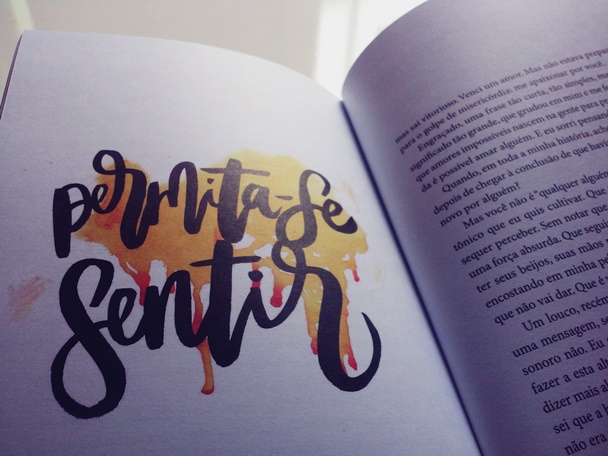 permita-se
sentir
mas saí vitorioso. Venci um amor. Mas não estava
para o golpe de misericórdia: me apaixonar por você.
Engraçado, uma frase tão curta, tão simples,
significado tão grande, que grudou em mim e me
que amores impossíveis nascem na gente para
da é possível amar alguém. E eu sorri
Quando, em toda a minha história,
depois de chegar à conclusão de que
novo por alguém?
Mas você não é "qualquer
tônico que eu quis cultivar. Que
sequer perceber. Sem notar
uma força absurda. Que
ter seus beijos, suas mãos
encostando em minha
que não vai dar. Que é
Um louco,
uma mensagem,
sonoro não. Eu
fazer a esta
dizer mais
sei que a
não era